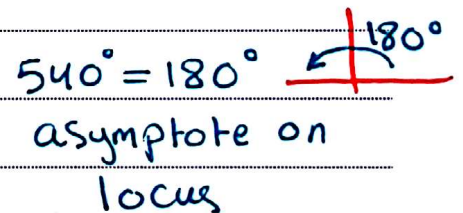 180°
540° = 180°
asymptote on
locus